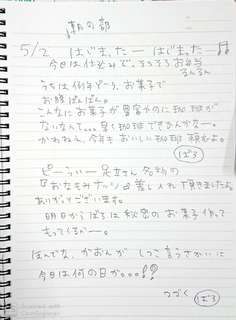 朝の部
5/2 はじまったーはじまった♪
今日は仕込みで、そろそろお弁当
るんるん
うちは例年どーり、お菓子で
お腹ぱんぱん。
こんなにお菓子が豊富やのに珈琲が
ないなんて...
かおねぇ、今年もおいしい珈琲頼むよ。
ぱろ
ピーうぃー足立さん名物の
『おなもみナッツ』差し入れで頂きましたよ
ありがとーございます。
明日からぱろは秘密のお菓子作って
もってくるぞー。
ほんでな、かおんが しつこ言うさかいに
今日は何の日か。。。!?
つづく ぱろ